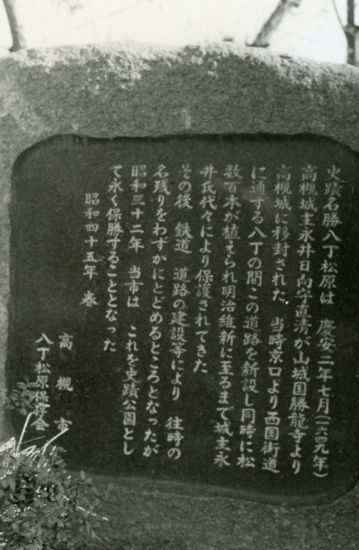 史蹟名勝八丁松原は　慶安二年七月(一六四九年)
高槻城主永井日向守直清が山城国勝龍寺より
高槻城に移封された　当時京口より西国街道
に通ずる八丁の間この道路を新設し同時に松
数百本が植えられ明治維新に至るまで城主永
井氏代々により保護されてきた
その後　鉄道　道路の建設等により　往時の
名残りをわずかにとどめるところとなったが
昭和三十二年　当市は　これを史蹟公園とし
て永く保勝することとなった
昭和四十五年　春
高槻市
八丁松原保存会